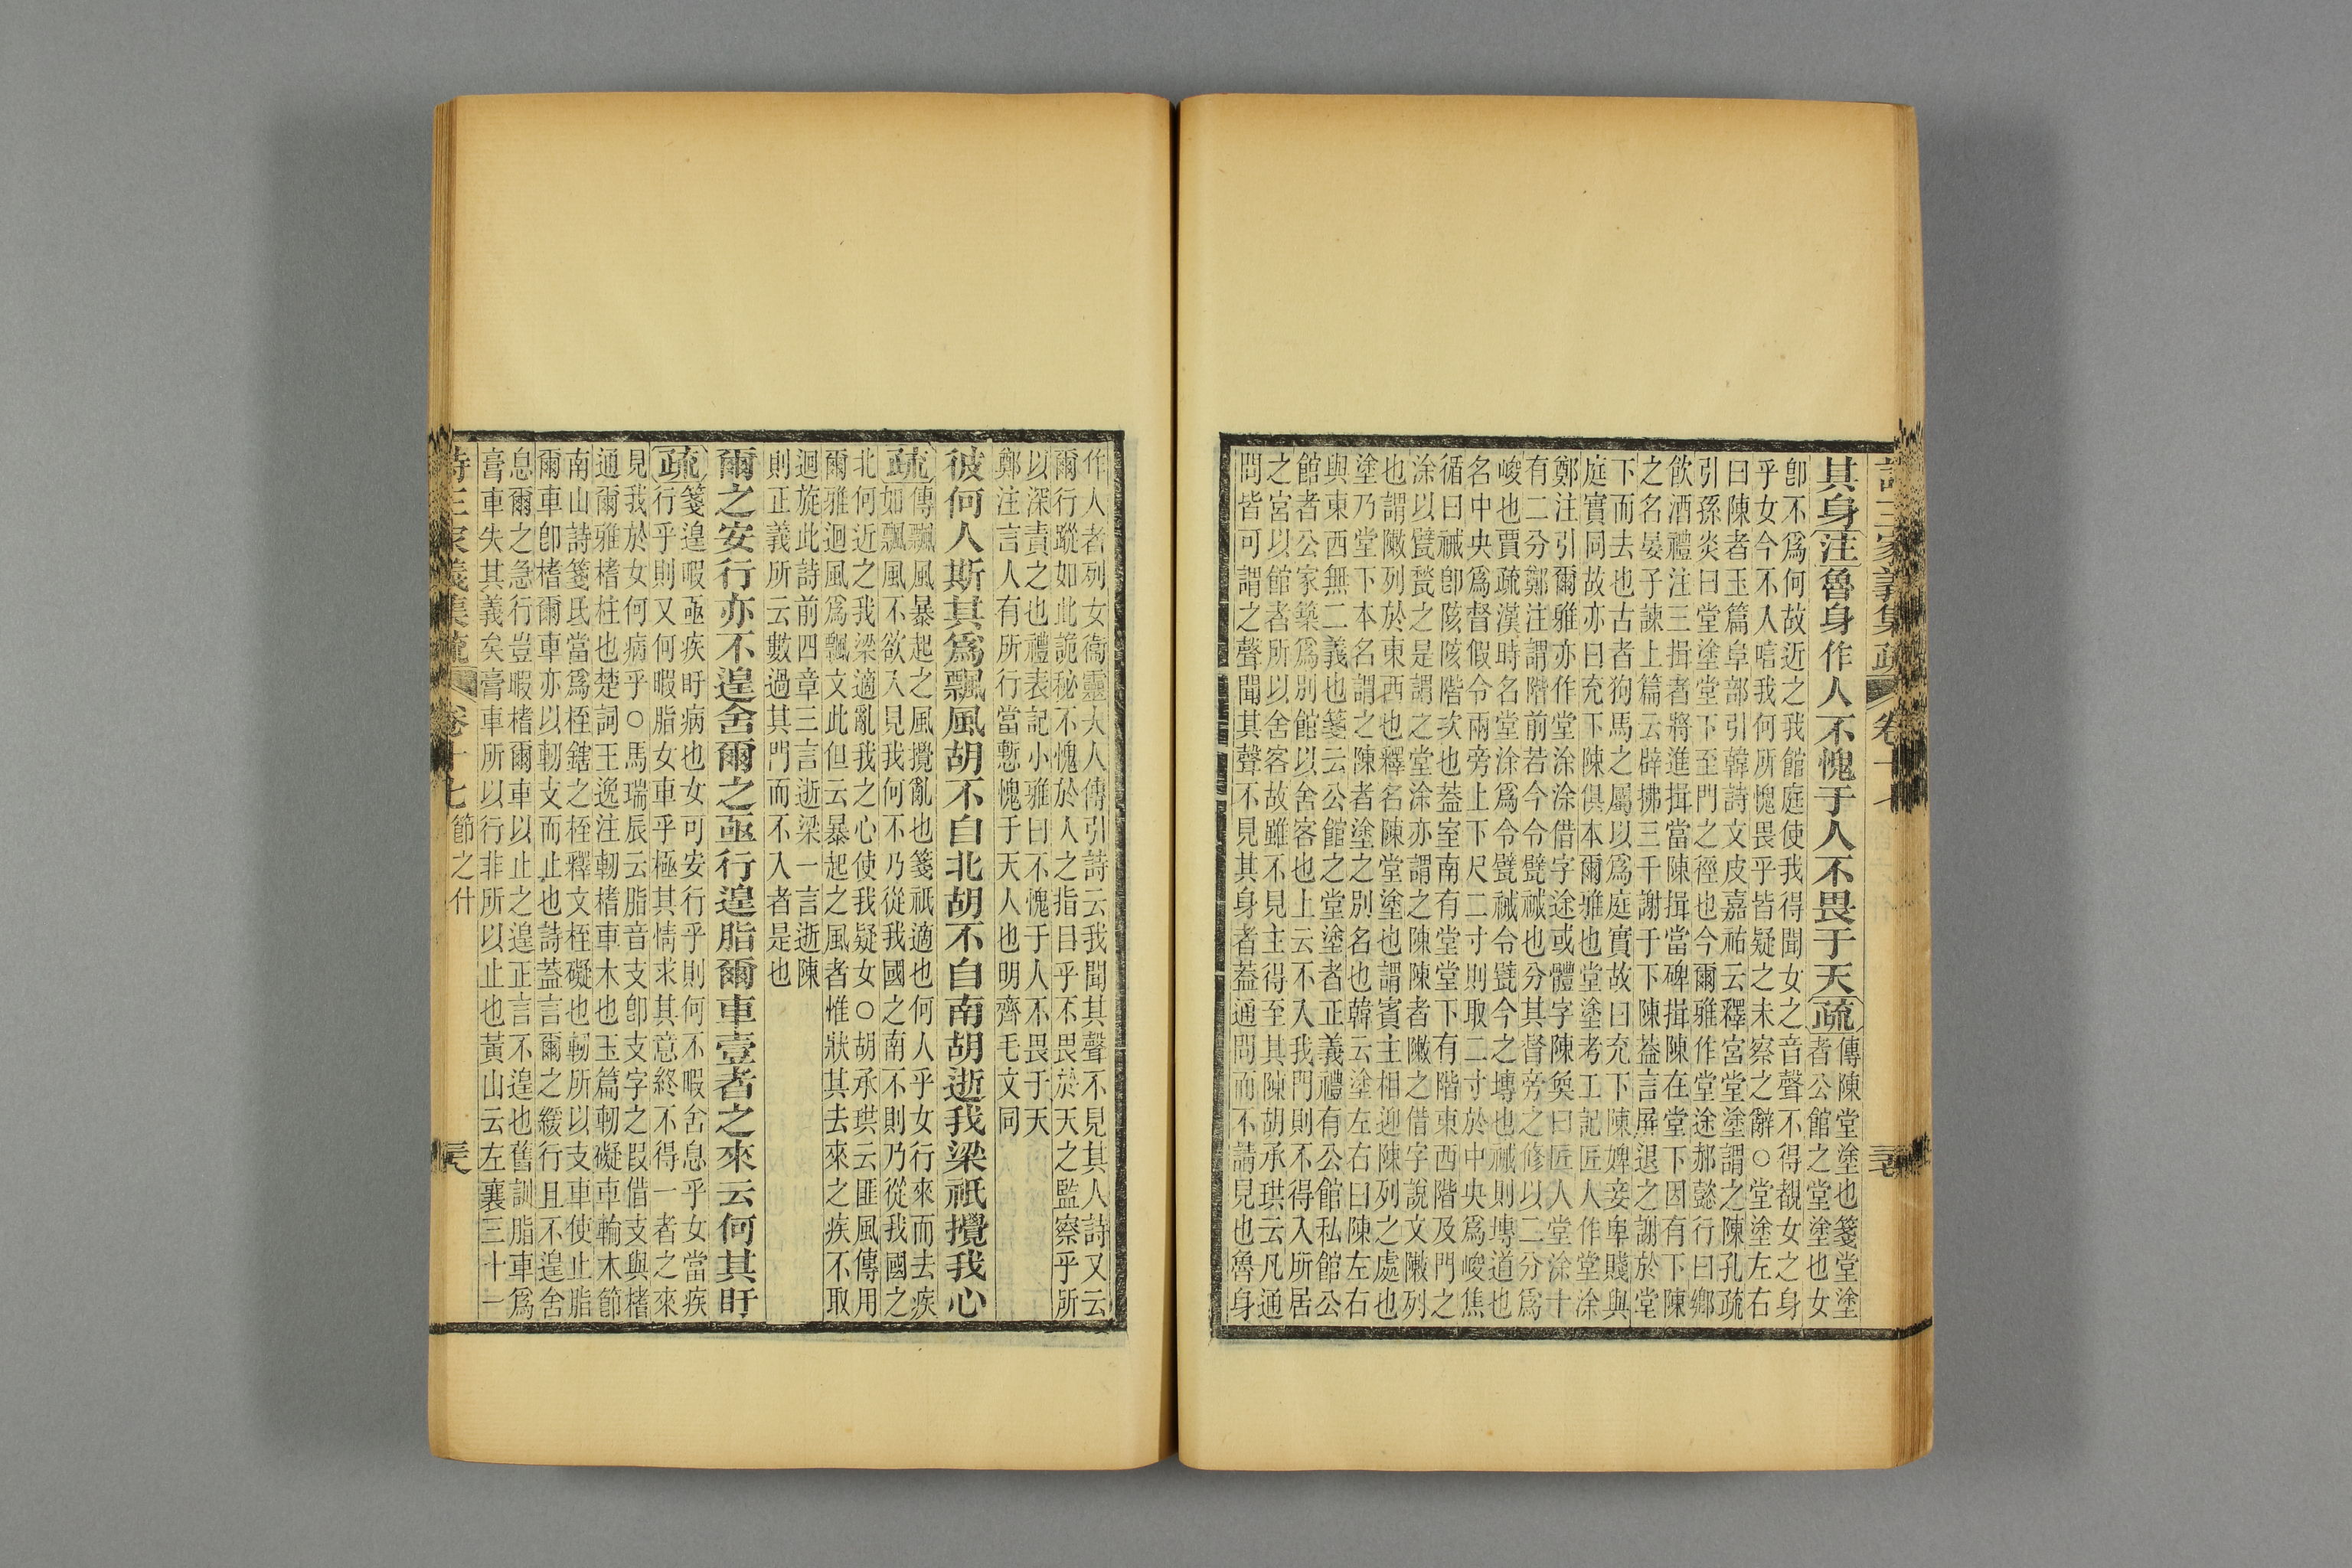 詩三家義集疏 卷十七
其身注魯身作人不愧于人不畏于天疏傳陳堂塗也箋堂塗
者公館之堂塗也女
卽不爲何故近之我館庭使我得聞女之音聲不得覩女之身
乎女今不入唁我何所愧畏乎皆疑之未察之辭○堂塗左右
曰陳者玉篇阜部引韓詩文皮嘉祐云釋宮堂塗謂之陳孔疏
引孫炎曰堂塗堂下至門之徑也今爾雅作堂途郝懿行曰鄉
飲酒禮注三揖者將進揖當陳揖當碑揖陳在堂下因有下陳
之名晏子諫上篇云辟拂三千謝于下陳葢言屏退之謝於堂
下而去也古者狗馬之屬以爲庭實故曰充下陳婢妾卑賤與
庭實同故亦曰充下陳俱本爾雅也堂塗考工記匠人作堂涂
鄭注引爾雅亦作堂涂涂借字途或體字陳奐曰匠人堂涂十
有二分鄭注謂階前若今令甓祴也分其督旁之修以二分爲
峻也賈疏漢時名堂涂爲令甓祴令甓今之塼也祴則塼道也
名中央爲督假令兩旁上下尺二寸則取二寸於中央爲峻焦
循曰祴卽陔陔階次也葢室南有堂堂下有階東西階及門之
涂以甓甃之是謂之堂涂亦謂之陳陳者敶之借字說文敶列
也謂敶列於東西也釋名陳堂塗也謂賓主相迎陳列之處也
塗乃堂下本名謂之陳者塗之別名也韓云塗左右曰陳左右
與東西無二義也箋云公館之堂塗者正義禮有公館私館公
館者公家築爲別館以舍客也上云不入我門則不得入所居
之宮以館者所以舍客故雖不見主得至其陳胡承珙云凡通
問皆可謂之聲聞其聲不見其身者葢通問而不請見也魯身
作人者列女衞靈夫人傳引詩云我聞其聲不見其人詩又云
爾行蹤如此詭秘不愧於人之指目乎不畏於天之監察乎所
以深責之也禮表記小雅曰不愧于人不畏于天
鄭注言人有所行當慙愧于天人也明齊毛文同
彼何人斯其爲飄風胡不自北胡不自南胡逝我梁祇攪我心
疏傳飄風暴起之風攪亂也箋祇適也何人乎女行來而去疾
如飄風不欲入見我何不乃從我國之南不則乃從我國之
北何近之我梁適亂我之心使我疑女○胡承珙云匪風傳用
爾雅迴風爲飄文此但云暴起之風者惟狀其去來之疾不取
迴旋此詩前四章三言逝梁一言逝陳
則正義所云數過其門而不入者是也
爾之安行亦不遑舍爾之亟行遑脂爾車壹者之來云何其盱
疏箋遑暇亟疾盱病也女可安行乎則何不暇舍息乎女當疾
行乎則又何暇脂女車乎極其情求其意終不得一者之來
見我於女何病乎○馬瑞辰云脂音支卽支字之叚借支與榰
通爾雅榰柱也楚詞王逸注軔榰車木也玉篇軔礙車輪木節
南山詩箋氐當爲桎鎋之桎釋文桎礙也軔所以支車使止脂
爾車卽榰爾車亦以軔支而止也詩葢言爾之緩行且不遑舍
息爾之急行豈暇榰爾車以止之遑正言不遑也舊訓脂車爲
膏車失其義矣膏車所以行非所以止也黃山云左襄三十一
詩三家義集疏 卷十七 節之什